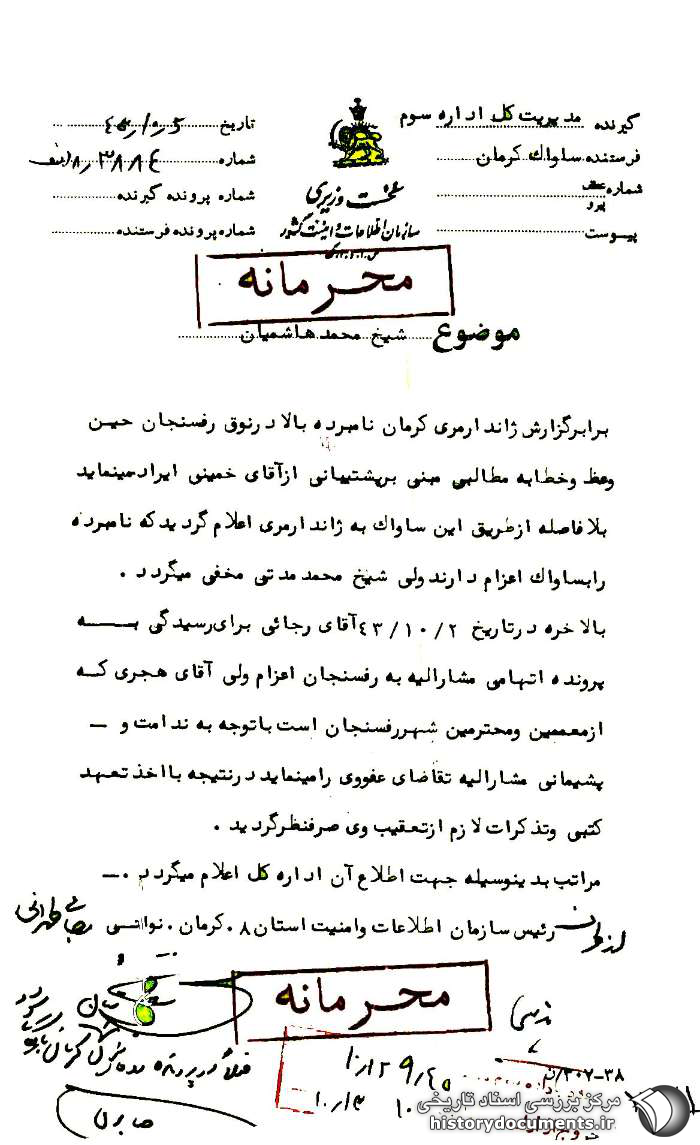 گیرنده مدیریت کل اداره سوم
فرستنده ساواك کرمان
شماره عطف پیرو
پیوست
نخست وزیری
سازمان اطلاعات و امنیت کشور
تاریخ
شماره
شماره پرونده گیرنده
شماره پرونده فرستنده
محرمانه
موضوع شیخ محمد هاشمیان
برابرگزارش ژاندارمری کرمان نامبرده بالا درنوق رفسنجان حیـن
وعظ وخطابه مطالبی مبنی برپشتیبانی ازآقای خمینی ایرادمینماید
بلافاصله ازطریق این ساواك به ژاندارمری اعلام گردیدکه نامبرده
رابساواك اعزام دارندولی شیخ محمدمدتی مخفی میگردد .
بالاخره درتاریخ ٤٣/١٠/٢ آقای رجائی برای‌رسیدگی بـــه
پرونده اتهامی مشارالیه به رفسنجان اعزام ولی آقای هجری کـه
ازمعممین ومحترمین شهررفسنجان است باتوجه به ندامت و ــ
پشیمانی مشارالیه تقاضای عفووی رامینماید درنتیجه بااخذتعهد
کتبی وتذکرات لازم ازتعقیب وی صرفنظرگردید .
مراتب بدینوسیله جهت اطلاع آن اداره کل اعلام میگردد .ــ
رئیس سازمان اطلاعات وامنیت استان ٨ . کرمان .
محرمانه
٣٠٢-٣٨
مرکز بررسی اسناد تاریخی
historydocuments.ir